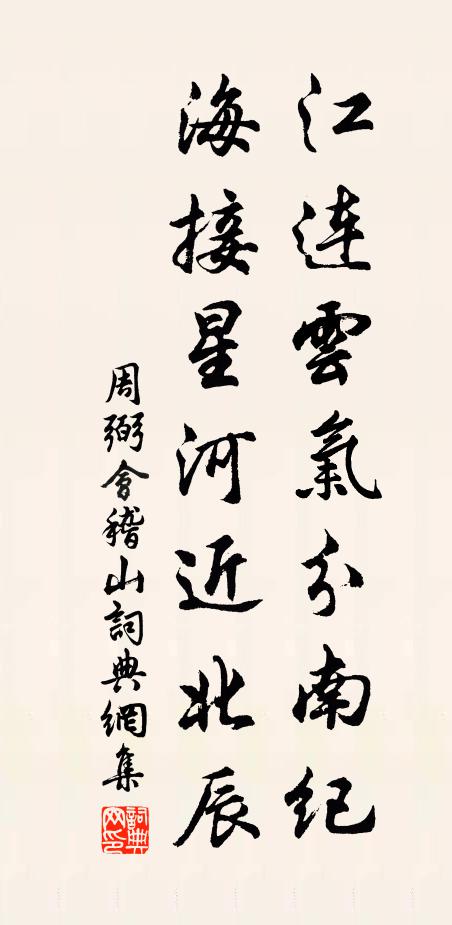 江連雲氣分南紀
海接星河近北辰
周弼會稽山詞典網集
詞典網印